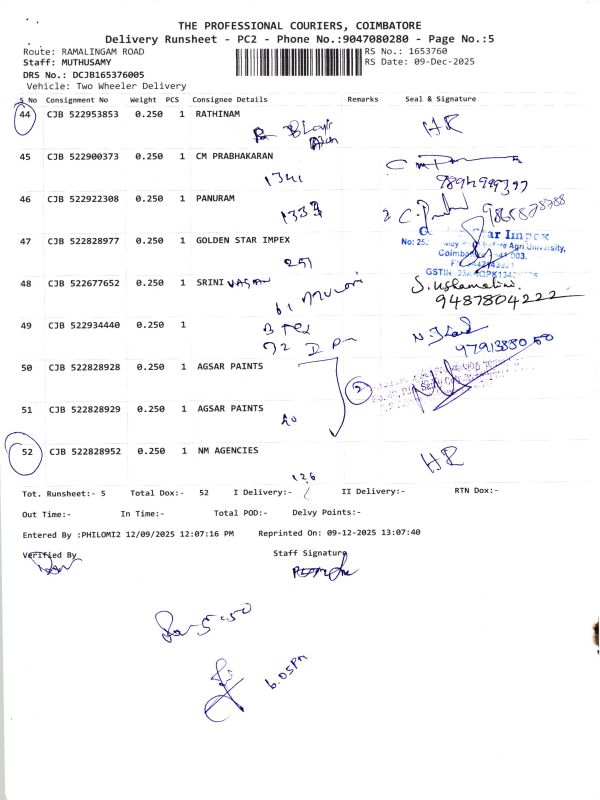 THE PROFESSIONAL COURIERS, COIMBATORE
Delivery Runsheet - PC2 - Phone No.:9047080280 - Page No.:5
Route: RAMALINGAM ROAD RS No.: 1653760
Staff: MUTHUSAMY RS Date: 09-Dec-2025
DRS No.: DCJB165376005
Vehicle: Two Wheeler Delivery
S No Consignment No Weight PCS Consignee Details Remarks Seal & Signature
44 CJB 522953853 0.250 1 RATHINAM HR
45 CJB 522900373 0.250 1 CM PRABHAKARAN
1341
46 CJB 522922308 0.250 1 PANURAM
1333
47 CJB 522828977 0.250 1 GOLDEN STAR IMPEX
251
48 CJB 522677652 0.250 1 SRINI VASAN
9487804222
49 CJB 522934440 0.250 1
72
50 CJB 522828928 0.250 1 AGSAR PAINTS
2
51 CJB 522828929 0.250 1 AGSAR PAINTS
52 CJB 522828952 0.250 1 NM AGENCIES HR
126
Tot. Runsheet:- 5 Total Dox:- 52 I Delivery:- II Delivery:- RTN Dox:-
Out Time:- In Time:- Total POD:- Delvy Points:-
Entered By :PHILOMI2 12/09/2025 12:07:16 PM Reprinted On: 09-12-2025 13:07:40
Verified By Staff Signature
5-50
6.05PM